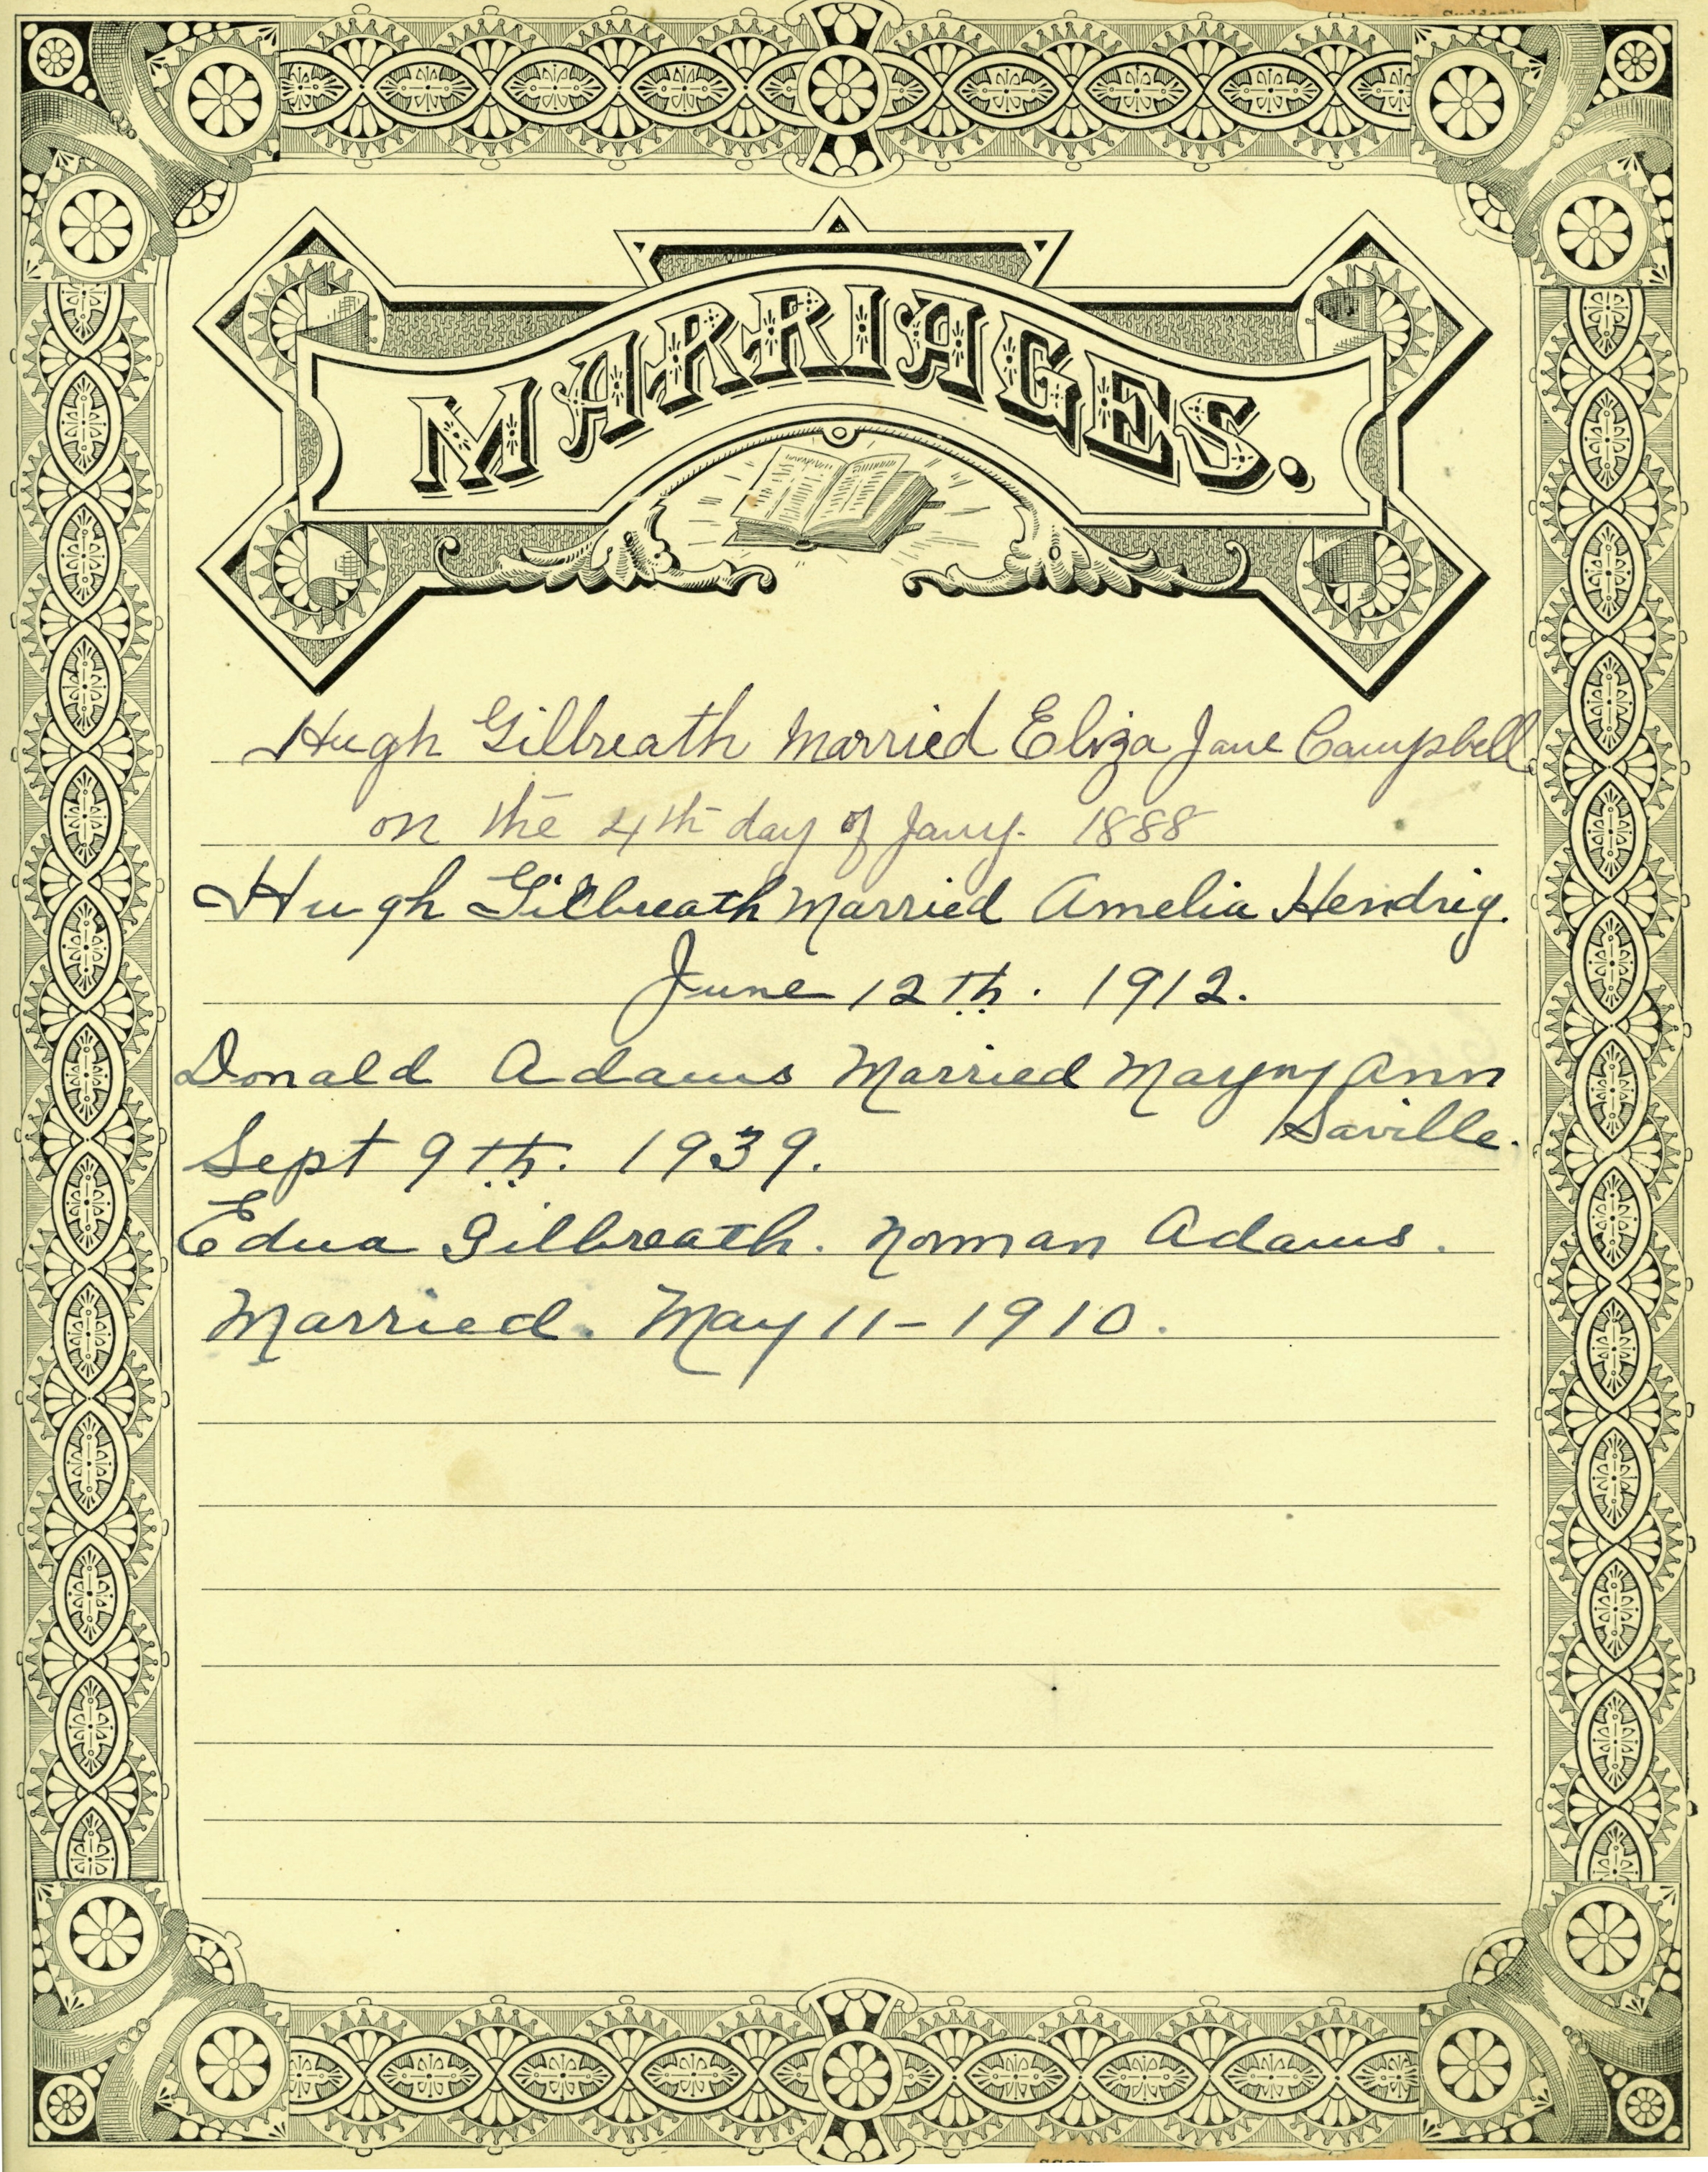 MARRIAGES.
Hugh Gilbreath Married Eliza Jane Campbell
on the 4th day of Jany. 1888
Hugh Gilbreath Married Amelia Hendrig.
June 12th. 1912.
Donald Adams Married Ann
Saville.
Sept 9th. 1939.
Edna Gilbreath. Norman Adams.
Married. May 11-1910.